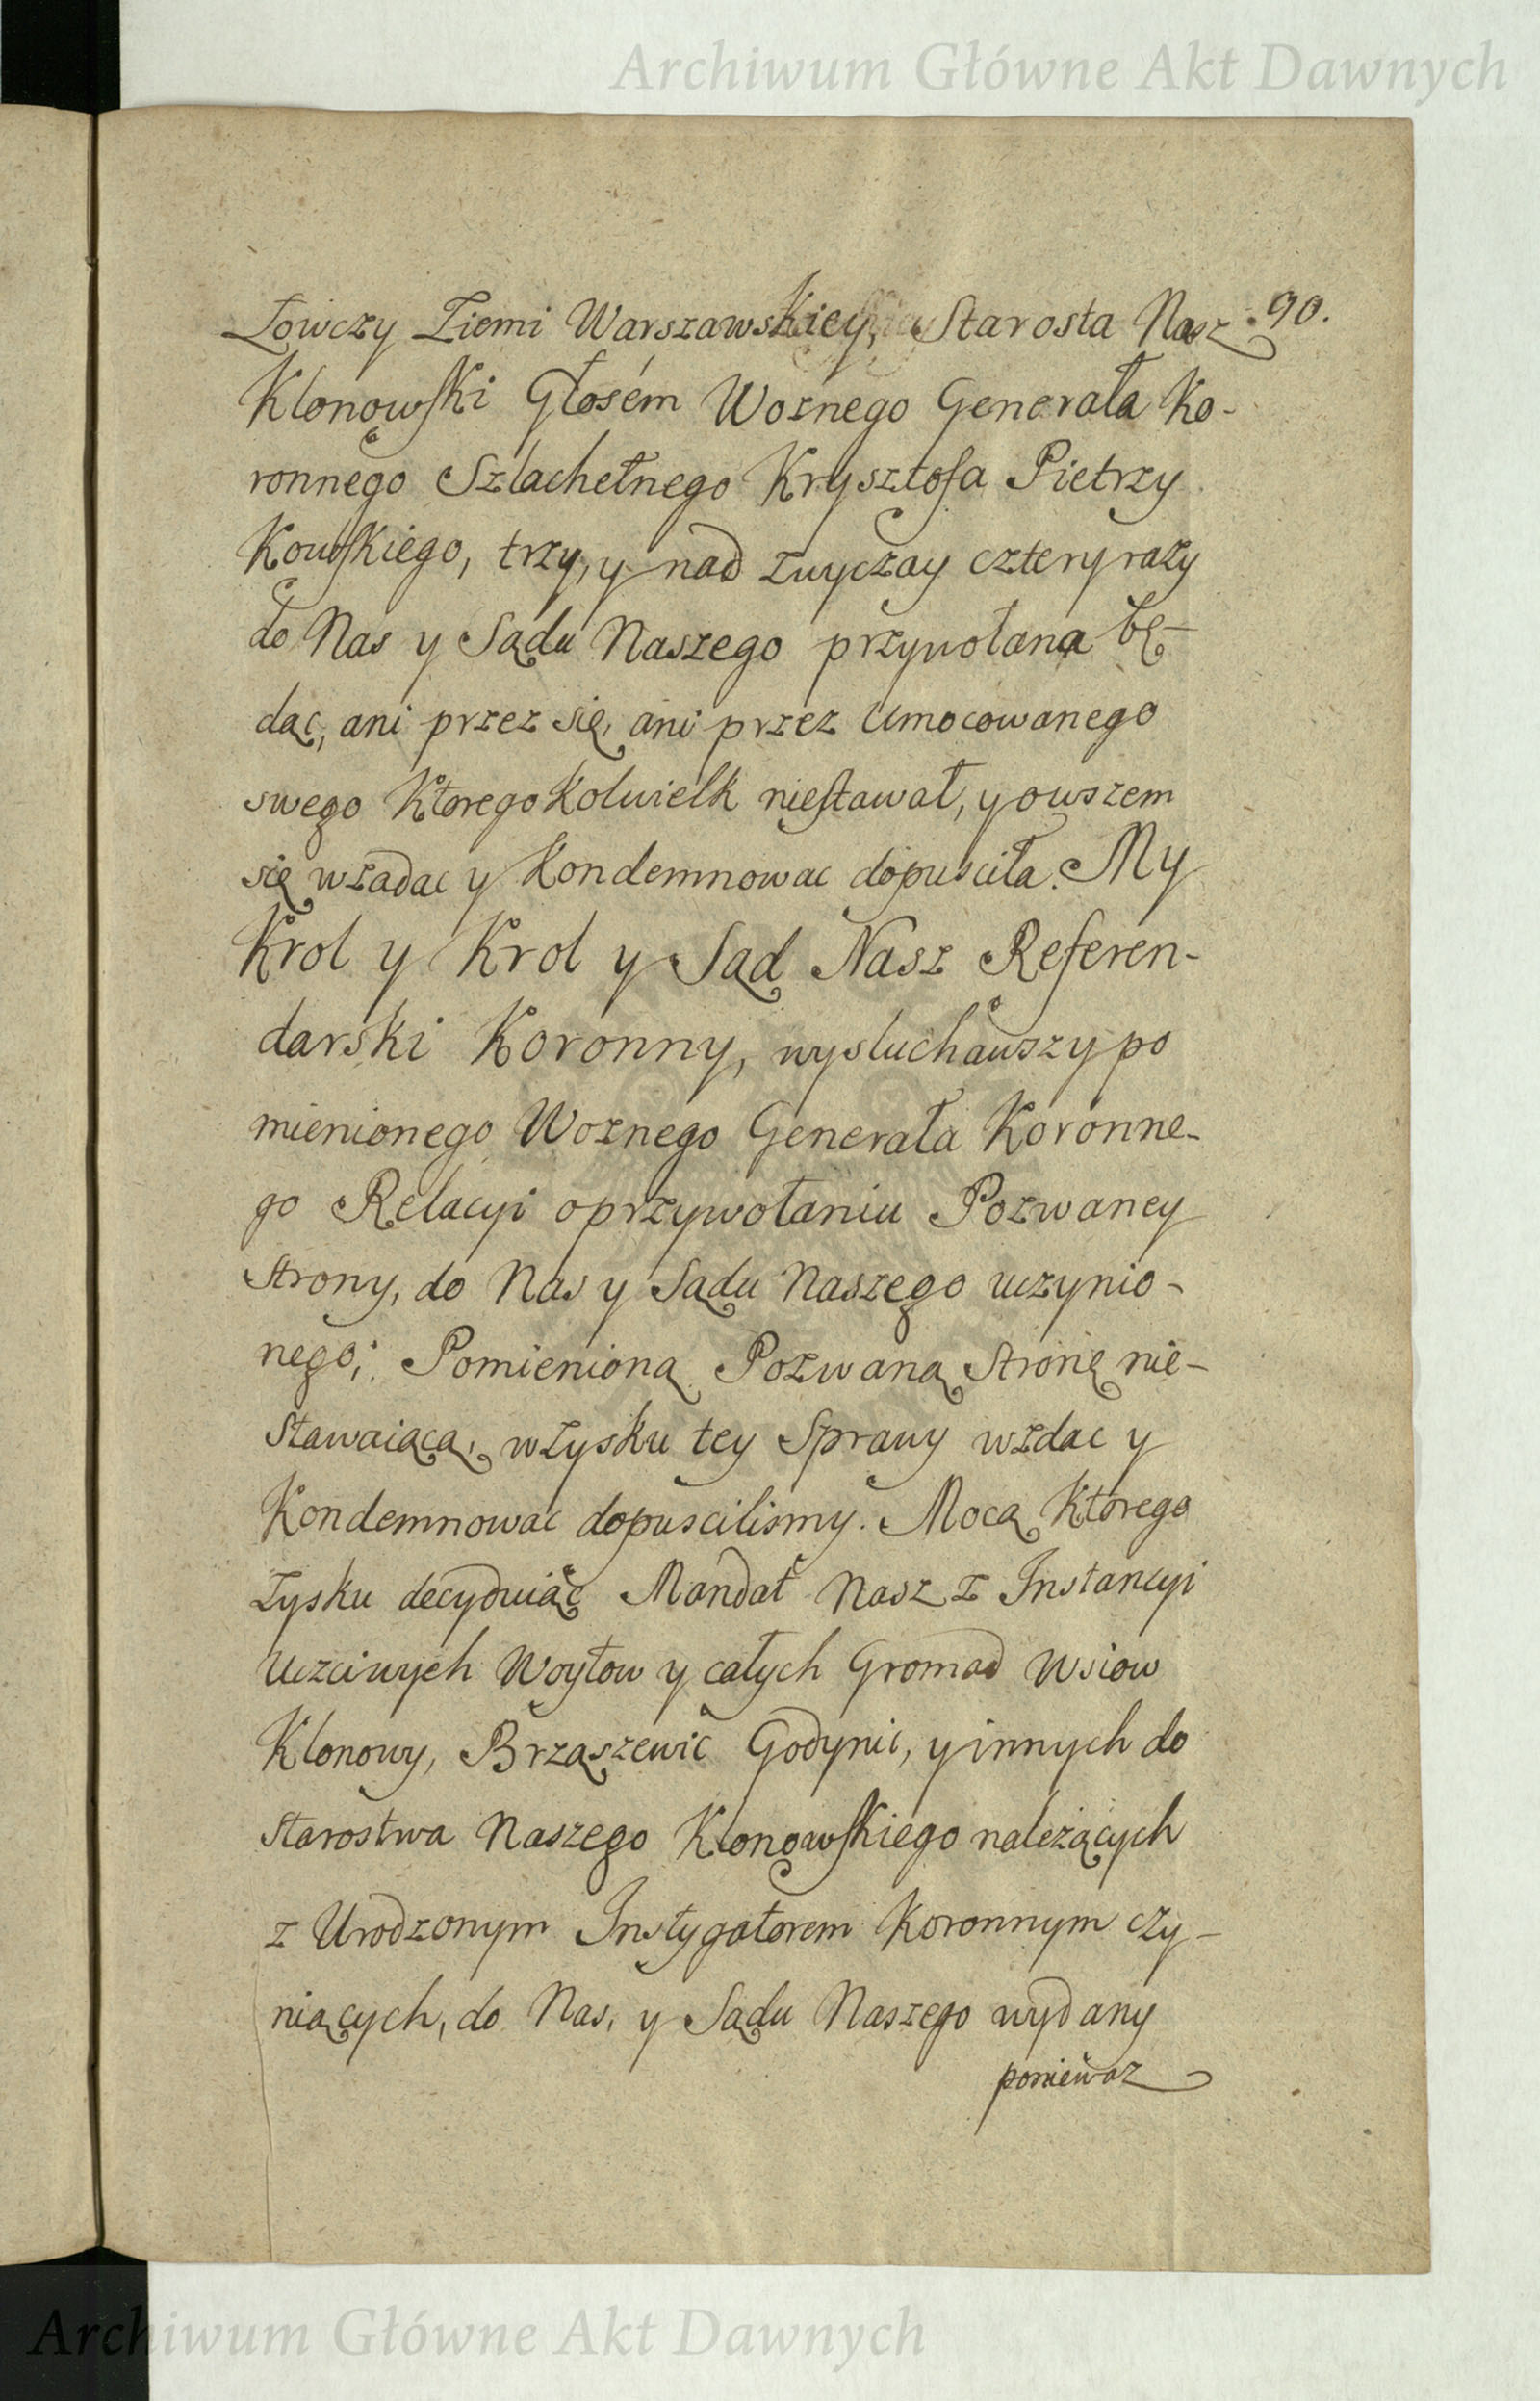 Archiwum Główne Akt Dawnych
Łowczy Ziemi Warszawskiey, Starosta Nasz 90.
Klonowski Głosem Woznego Generała Ko-
ronnego Szlachetnego Krysztofa Pietrzy
Kowskiego, trzy, y nad zwyczay cztery razy
do Nas y Sądu Naszego przywołana bę-
dąc, ani przez się, ani przez Umocowanego
swego Ktorego Kolwielk niestawał, y owszem
się wzadac y Kondemnowac dopusciła. My
Krol y Krol y Sąd Nasz Referen-
darski Koronny, wysluchawszy po
mienionego Woznego Generała Koronne-
go Relacyi o przywołaniu Pozwaney
Strony, do Nas y Sądu Naszego uczynio-
nego; Pomienioną Pozwaną Stronę nie-
stawaiącą, w Zysku tey Sprawy wzdac y
Kondemnowac dopuscilismy. Mocą Ktorego
Zysku decyduiąc Mandat Nasz z Instancyi
Uczciwych Woytow y całych Gromad Wsiow
Klonowy, Brząszewic Godynic, y innych do
Starostwa Naszego Klonowskiego należących
z Urodzonym Instygatorem Koronnym czy-
niących, do Nas, y Sądu Naszego wydany
poniewaz
Archiwum Główne Akt Dawnych